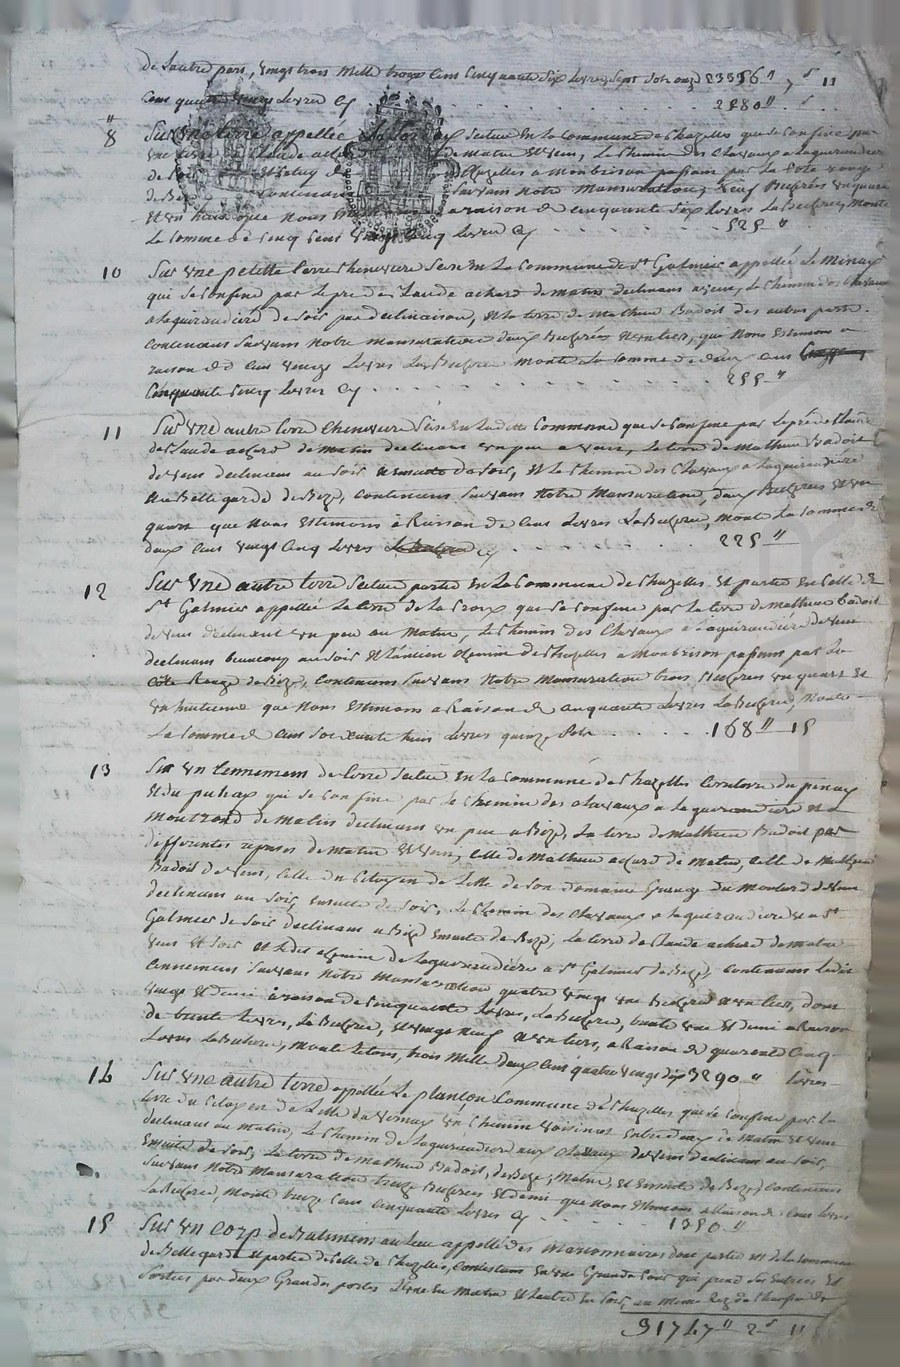 de Lautre part, vingt trois mille trois cens cinquante six Livres, sept sols onze 23356" 7 s 11
Cens quatre vingt Livres Cy 2280"
8 Sur une terre appellée Scitue En La Commune de Chazelles que se confine par
une terre Claude achard de matin et vent, Le Chemin des Chavaux a Laquerandiere
de Soir Chazelles a monbrison passant par La Cote rouge
de Bize Contenant Suivant notre mansuration, neuf Bicherés un quart
et un huit que nous Estimons a raison de cinquante six Livres La Bicheré, Monte
La Somme de Cinq Cens vingt Cinq Livres Cy 525"
10 Sur une petitte terre Cheneviere Scise En La Commune de St Galmier appellée Le Minaud
qui se confine par Le pré de Claude achard de matin declinant a vent, Le Chemin des Chavaux
a Laquirandiere de Soir par declinaison, et La terre de Mathieu Badoit des autres parts
Contenant Suivant notre mansuration deux Bicherés un tiers, que nous Estimons a
raison de cent onze Livres La Bicheré monte La Somme de deux cens
Cinquante Cinq Livres Cy 255"
11 Sur une autre terre Cheneviere Scise En La ditte Commune que se confine par Le pré
de Claude achard de matin declinant un peu a vent, La terre de Mathieu Badoit
de vent declinant au Soir Ensuitte de Soir, et Le Chemin des Chavaux a Laquirandiere
a Bellegarde de Bize, Contenant Suivant notre Mansuration, deux Bicherés et un
quart que nous Estimons a Raison de Cent Livres La Bicheré, Monte La Somme de
deux Cens vingt Cinq Livres Cy 225"
12 Sur une autre terre Scitue partie En La Commune de Chazelles et partie En Celle de
St Galmier appellée La terre de La Croix que se confine par La terre de Mathieu Badoit
de vent declinant un peu au Matin, Le Chemin des Chavaux a Laquirandiere de vent
declinant beaucoup au Soir et L'ancien chemin de Chazelles a Monbrison passant par La
Côte Rouge de Bize, Contenant Suivant notre Mansuration trois Bicherés un quart et
un huitieme que nous Estimons a Raison de cinquante Livres La Bicheré, Monte
La Somme de Cent Soixante huit Livres quinze Sols 168" 15
13 Sur un Tennement de terre Scitué En La Commune de Chazelles territoire du pinay
et du qui se confine par Le Chemin des Chavaux a Laquerandiere et a
Montrond de Matin declinant un peu a Bize, La terre de Mathieu Badoit par
differentes reprises de Matin et vent, Celle de Mathieu achard de Matin, Celle de
Badoit de vent, Celle du Citoyen de Lille de Son domaine Grange du Montard de vent
declinant au Soir, ensuitte de Soir, Le Chemin des Chavaux a Laquirandiere et a St
Galmier de Soir declinant a Bize Ensuite de Bize, La terre de Claude achard de matin
vent et Soir et Le dit chemin de Laquerandiere a St Galmier de Bize, Contenant Ledit
tennement Suivant notre Mansuration quatre vingt une Bicheré et un tiers, dont
vingt et demi a raison de Cinquante Livres, La Bicheré, trente une et demi a Raison
de trente Livres, La Bicheré, et vingt neuf et un tiers, a Raison de quarente Cinq
Livres La Bicheré, Monte Letout, trois Mille deux Cens quatre vingt dix 3290" Livres
14 Sur une autre terre appellée Le planton Commune de Chazelles que se confine par La
terre du Citoyen de Lille du vernay un Chemin voisinal Entre deux de Matin et vent
declinant au Matin, Le Chemin de Laquerandiere aux Chavaux de vent declinant au Soir,
Ensuitte de Soir, La terre de Mathieu Badoit, de Bize, Matin, et Ensuite de Bize, Contenant
Suivant notre Mansuration treize Bicherés et demi que nous Estimons a Raison de Cent Livres
La Bicheré, Monte treize Cens Cinquante Livres Cy 1350"
15 Sur un Corp de Batimens au Lieu appellé des Marionnaires dont partie est de La Commune
de Bellegarde et partie de Celle de Chazelles, Consistant En une Grande Cour qui prend Ses Entrées et
Sorties par deux Grandes portes L'une En Matin et L'autre En Soir, au même Rez de Chaussée de
31747" 2 s 11